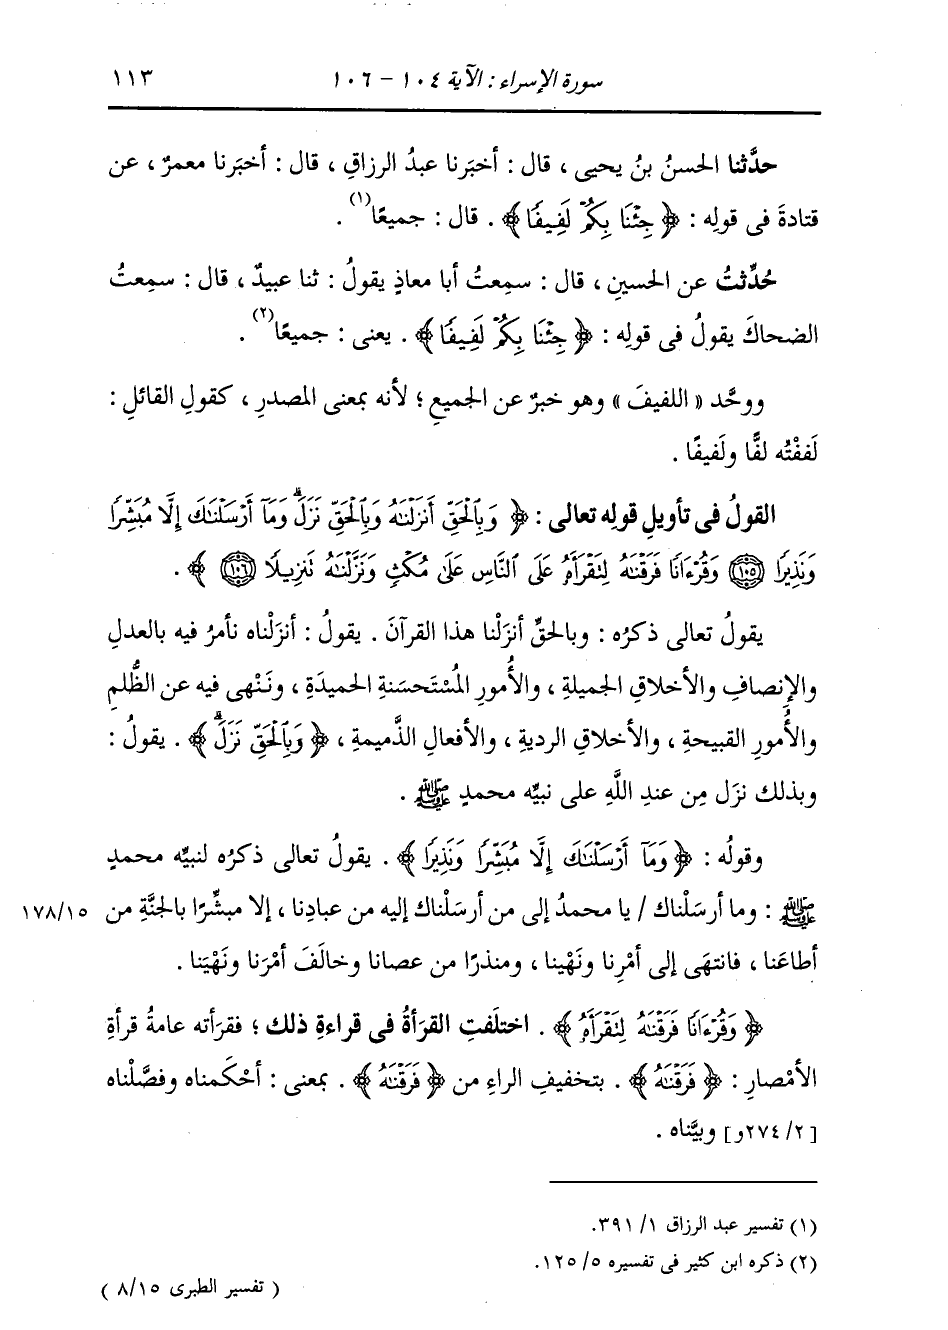 سورة الإسراء : الآية ١٠٤ - ١٠٦ ١١٣
حدَّثنا الحسنُ بنُ يحيى ، قال : أخبَرنا عبدُ الرزاقِ ، قال : أخبَرنا معمرٌ ، عن
قتادةَ فى قولِه : ﴿ جِئْنَا بِكُمْ لَفِيفًا ﴾ . قال : جميعًا(١) .
حُدِّثتُ عن الحسينِ ، قال : سمِعتُ أبا معاذٍ يقولُ : ثنا عبيدٌ ، قال : سمِعتُ
الضحاكَ يقولُ فى قولِه : ﴿ جِئْنَا بِكُمْ لَفِيفًا ﴾ . يعنى : جميعًا(٢) .
ووحَّد « اللفيفَ » وهو خبرٌ عن الجميعِ ؛ لأنه بمعنى المصدرِ ، كقولِ القائلِ :
لَففْتُه لفًّا ولَفيفًا .
القولُ فى تأويلِ قولِه تعالى : ﴿ وَبِٱلْحَقِّ أَنزَلْنَٰهُ وَبِٱلْحَقِّ نَزَلَ ۗ وَمَآ أَرْسَلْنَٰكَ إِلَّا مُبَشِّرًا
وَنَذِيرًا ﴿١٠٥﴾ وَقُرْءَانًا فَرَقْنَٰهُ لِتَقْرَأَهُۥ عَلَى ٱلنَّاسِ عَلَىٰ مُكْثٍ وَنَزَّلْنَٰهُ تَنزِيلًا ﴿١٠٦﴾ ﴾ .
يقولُ تعالى ذكرُه : وبالحقِّ أنزَلْنا هذا القرآنَ . يقولُ : أنزَلْناه نأمرُ فيه بالعدلِ
والإنصافِ والأخلاقِ الجميلةِ ، والأُمورِ المُسْتَحسَنةِ الحميدَةِ ، ونَنْهى فيه عن الظُّلمِ
والأُمورِ القبيحةِ ، والأخلاقِ الرديةِ ، والأفعالِ الذَّميمةِ ، ﴿ وَبِٱلْحَقِّ نَزَلَ ۗ ﴾ . يقولُ :
وبذلك نزَل مِن عندِ اللَّهِ على نبيِّه محمدٍ ﷺ .
وقولُه : ﴿ وَمَآ أَرْسَلْنَٰكَ إِلَّا مُبَشِّرًا وَنَذِيرًا ﴾ . يقولُ تعالى ذكرُه لنبيِّه محمدٍ
ﷺ : وما أرسَلْناك / يا محمدُ إلى من أرسَلْناك إليه من عبادِنا ، إلا مبشِّرًا بالجنَّةِ من ١٧٨/١٥
أطاعَنا ، فانتهَى إلى أمْرِنا ونَهْينا ، ومنذرًا من عصانا وخالَفَ أمْرَنا ونَهْيَنا .
﴿ وَقُرْءَانًا فَرَقْنَٰهُ لِتَقْرَأَهُۥ ﴾ . اختلَفتِ القرَأةُ فى قراءةِ ذلك ؛ فقرَأته عامةُ قرأةِ
الأمْصارِ : ﴿ فَرَقْنَٰهُ ﴾ . بتخفيفِ الراءِ من ﴿ فَرَقْنَٰهُ ﴾ . بمعنى : أحْكَمناه وفصَّلْناه
[ ٢/ ٢٧٤و ] وبيَّناه .
(١) تفسير عبد الرزاق ١/ ٣٩١.
(٢) ذكره ابن كثير فى تفسيره ٥/ ١٢٥.
( تفسير الطبرى ٨/١٥ )